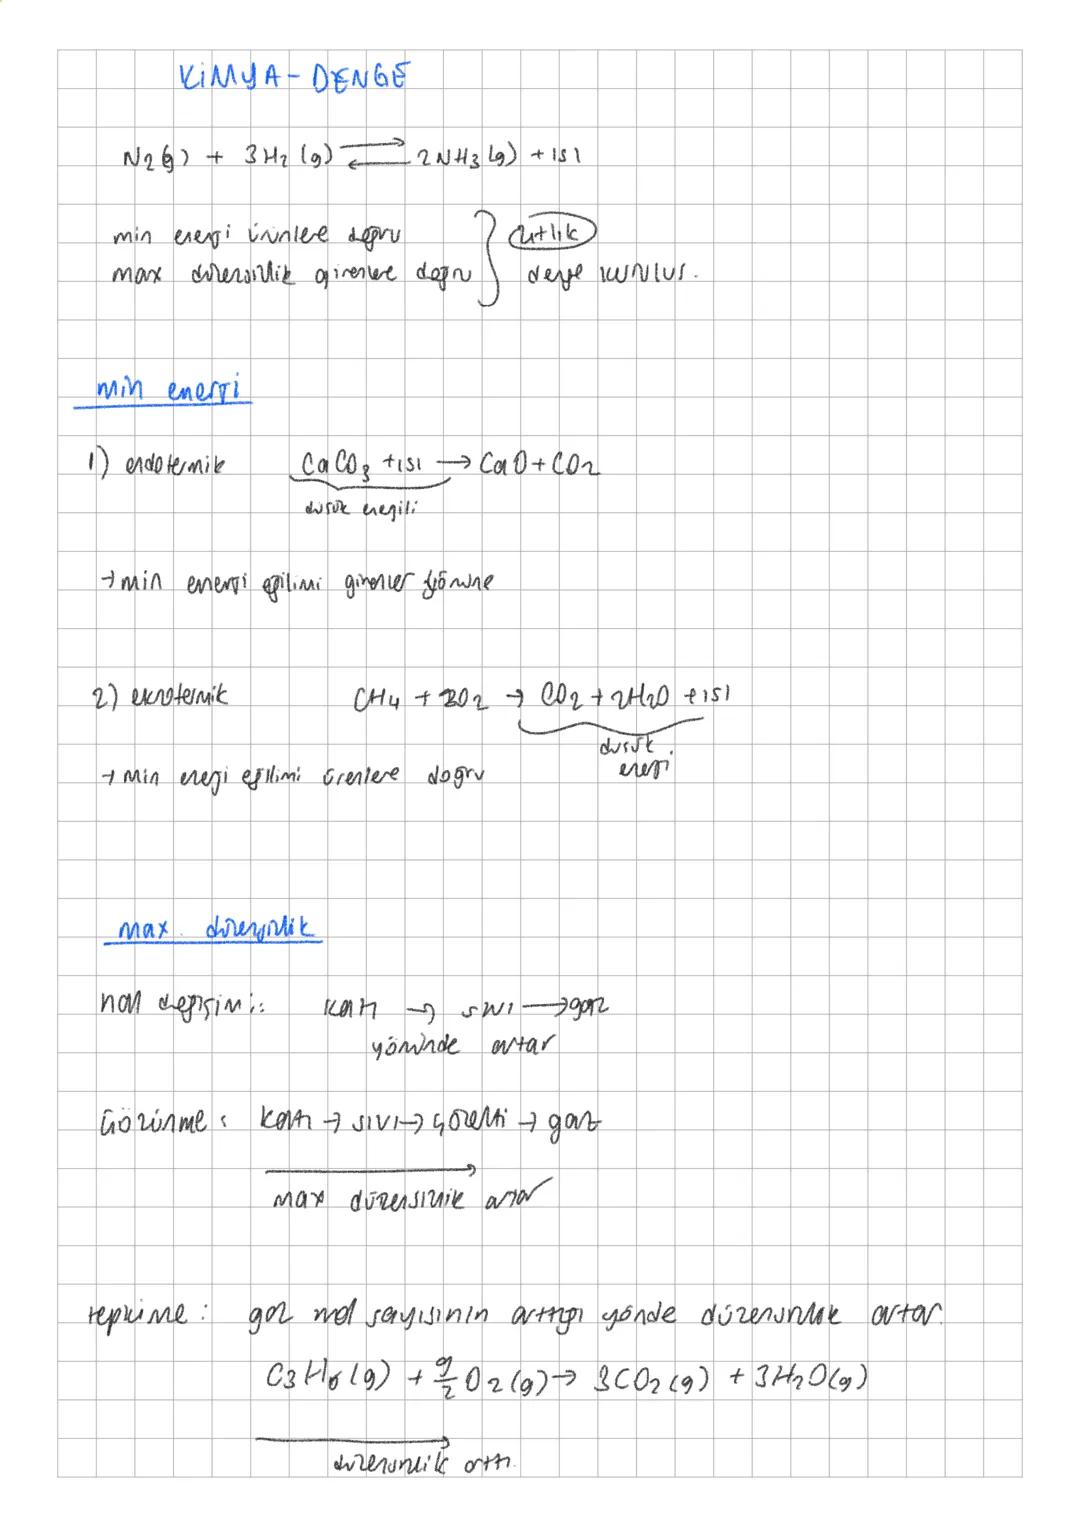 KİMYA - DENGE
N2(g) + 3H2(g) ⇌ 2NH3(g) + ısı
min enerji ürünlere doğru
max düzensizlik girenlere doğru
zıtlık
denge kurulur.
min enerji
1) endotermik CaCO3 + ısı → CaO + CO2
düşük enerjili
→ min enerji eğilimi girenler yönüne
2) ekzotermik CH4 + 2O2 → CO2 + 2H2O + ısı
düşük enerji
→ min enerji eğilimi ürünlere doğru
max. düzensizlik
hal değişimi: katı → sıvı → gaz
yönünde artar
Çözünme: katı → sıvı → çözelti → gaz
max düzensizlik artar
tepkime: gaz mol sayısının arttığı yönde düzensizlik artar.
C3H6(g) + 9/2 O2(g) → 3CO2(g) + 3H2O(g)
düzensizlik arttı.